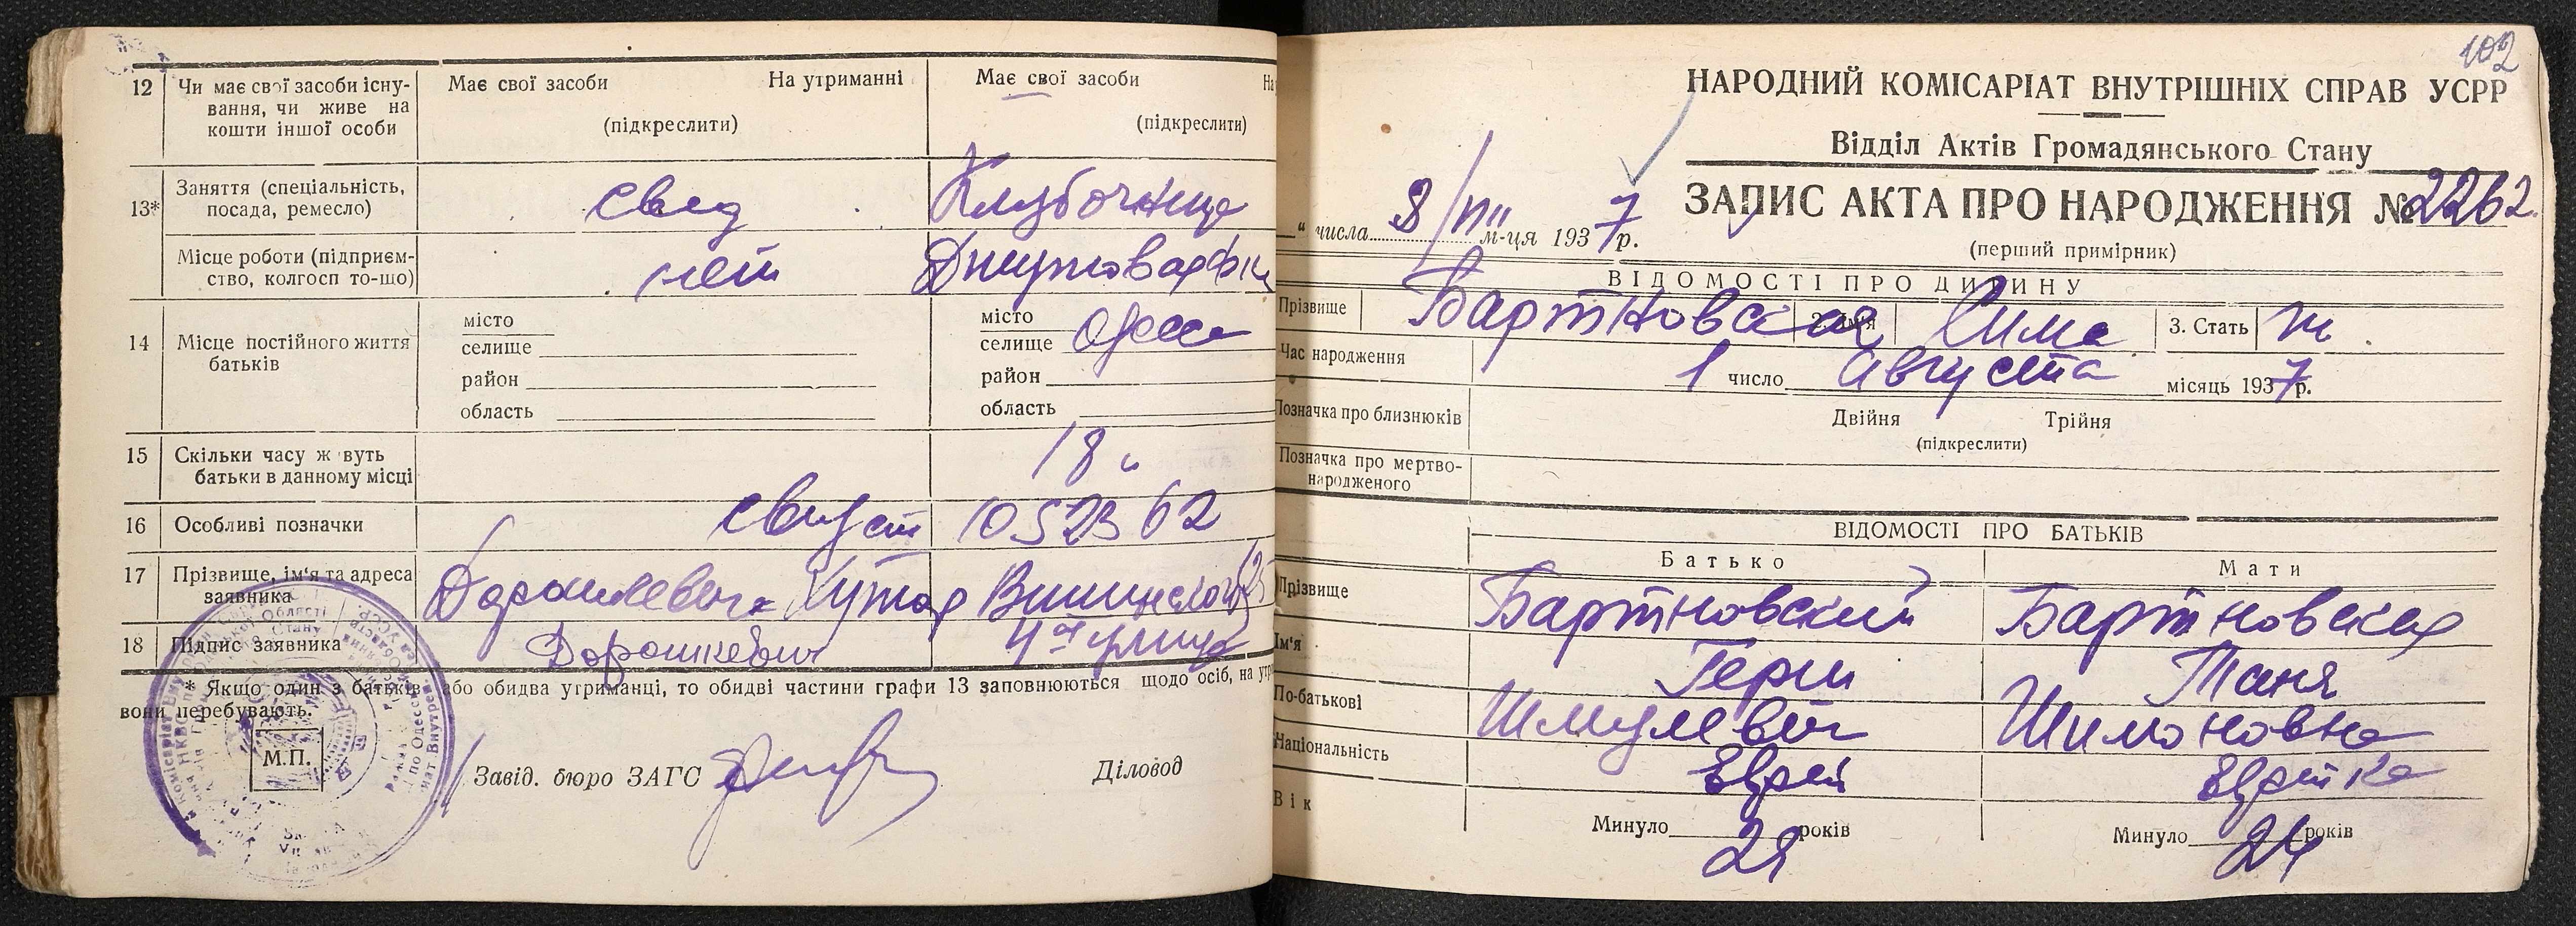 12 Чи має свої засоби існу-
вання, чи живе на
кошти іншої особи
Має свої засоби На утриманні
(підкреслити)
Має свої засоби
(підкреслити)
13* Заняття (спеціальність,
посада, ремесло)
свед
Клубочница
Місце роботи (підприєм-
ство, колгосп то-що)
нет
14 Місце постійного життя
батьків
місто
селище
район
область
місто
селище Одесса
район
область
15 Скільки часу ж вуть
батьки в данному місці
18
16 Особливі позначки
17 Прізвище, ім'я та адреса
заявника
Хутор
18 Підпис заявника
Дорошкевич
* Якщо один з батьків або обидва утриманці, то обидві частини графи 13 заповнюються щодо осіб, на
вони перебувають.
М.П.
Завід. бюро ЗАГС
Діловод
102
НАРОДНИЙ КОМІСАРІАТ ВНУТРІШНІХ СПРАВ УСРР
Відділ Актів Громадянського Стану
ЗАПИС АКТА ПРО НАРОДЖЕННЯ № 2262
(перший примірник)
" числа 8/VIII м-ця 1937 р.
ВІДОМОСТІ ПРО ДИТИНУ
Прізвище Бартновская 2. Ім'я Сима 3. Стать ж
Час народження 1 число Августа місяць 1937 р.
Позначка про близнюків Двійня Трійня
(підкреслити)
Позначка про мертво-
народженого
ВІДОМОСТІ ПРО БАТЬКІВ
Батько Мати
Прізвище Бартновский Бартновская
Ім'я Герш Таня
По-батькові Шмулевич Шимоновна
Національність Еврей Еврейка
Вік Минуло 29 років Минуло 24 років